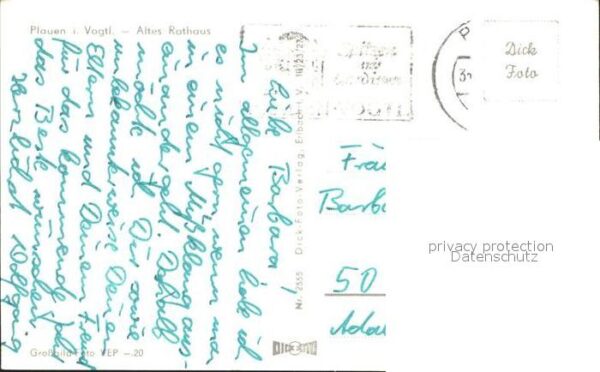 Plauen i. Vogtl. – Altes Rathaus
Liebe Barbara!
Im allgemeinen habe ich
es nicht gern, wenn man
in einem Mißklang aus-
einandergeht. Deshalb
möchte ich Dir sowie
unbekannterweise Deinen
Eltern und Deinem Freund
für das kommende Jahr
das Beste wünschen.
Herzlichst Wolfgang
Großbild-Foto VEP –.20
Nr. 2555 Dick-Foto-Verlag, Erlbach i. V. 18/23/27
DICK
Spitzen
und
Gardinen
Dick
Foto
Frau
Barba
50
privacy protection
Datenschutz